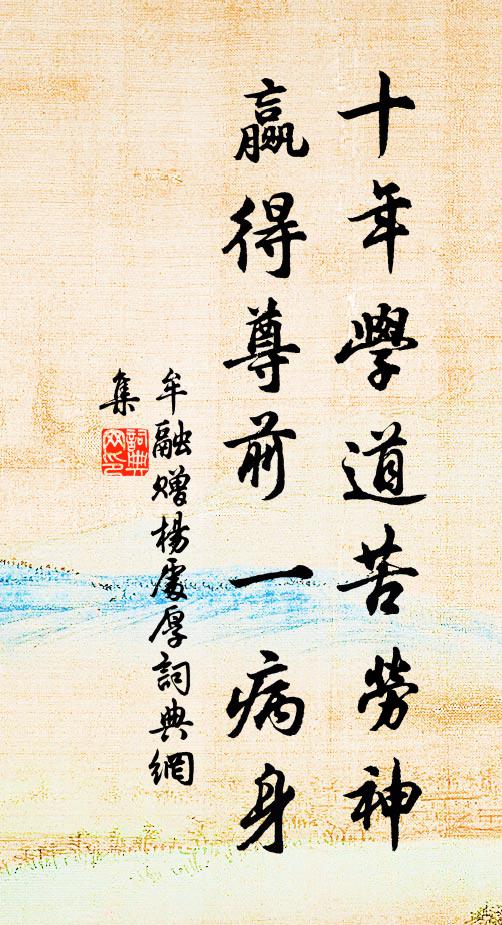 十年學道苦勞神
贏得尊前一病身
牟融贈楊處厚詞典網
集
詞典
网印